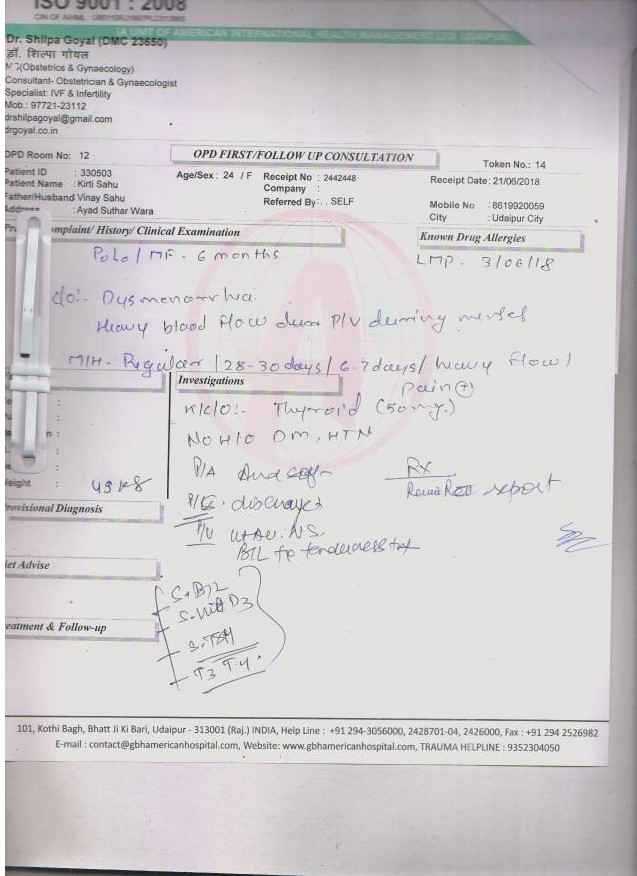 ISO 9001 : 2008
(A UNIT OF AMERICAN INTERNATIONAL HEALTH MANAGEMENT LTD. UDAIPUR)
Dr. Shilpa Goyal (DMC 23650)
डॉ. शिल्पा गोयल
(Obstetrics & Gynaecology)
Consultant- Obstetrician & Gynaecologist
Specialist: IVF & Infertility
Mob.: 97721-23112
drshilpagoyal@gmail.com
drgoyal.co.in
OPD Room No: 12
OPD FIRST/FOLLOW UP CONSULTATION
Token No.: 14
Patient ID : 330503
Age/Sex : 24 / F
Receipt No : 2442448
Receipt Date: 21/06/2018
Patient Name : Kirti Sahu
Company :
Father/Husband Vinay Sahu
Referred By: . SELF
Mobile No : 8619920059
Address : Ayad Suthar Wara
City : Udaipur City
omplaint/ History/ Clinical Examination
Known Drug Allergies
PoLo / MF - 6 months
LMP - 3/06/18
c/o:- Dysmenorrhea
Heavy blood flow P/V during menses
M/H - Regular / 28-30 days / 6-7 days / heavy flow /
pain (+)
Investigations
K/C/O:- Thyroid (50 mg.)
NO H/O DM, HTN
P/A soft
Rx
report
eight : 49 kg
discharge
rovisional Diagnosis
P/V NS.
tenderness
iet Advise
S. Vit D3
S. TSH
T3 T4
eatment & Follow-up
101, Kothi Bagh, Bhatt Ji Ki Bari, Udaipur - 313001 (Raj.) INDIA, Help Line : +91 294-3056000, 2428701-04, 2426000, Fax : +91 294 2526982
E-mail : contact@gbhamericanhospital.com, Website: www.gbhamericanhospital.com, TRAUMA HELPLINE : 9352304050